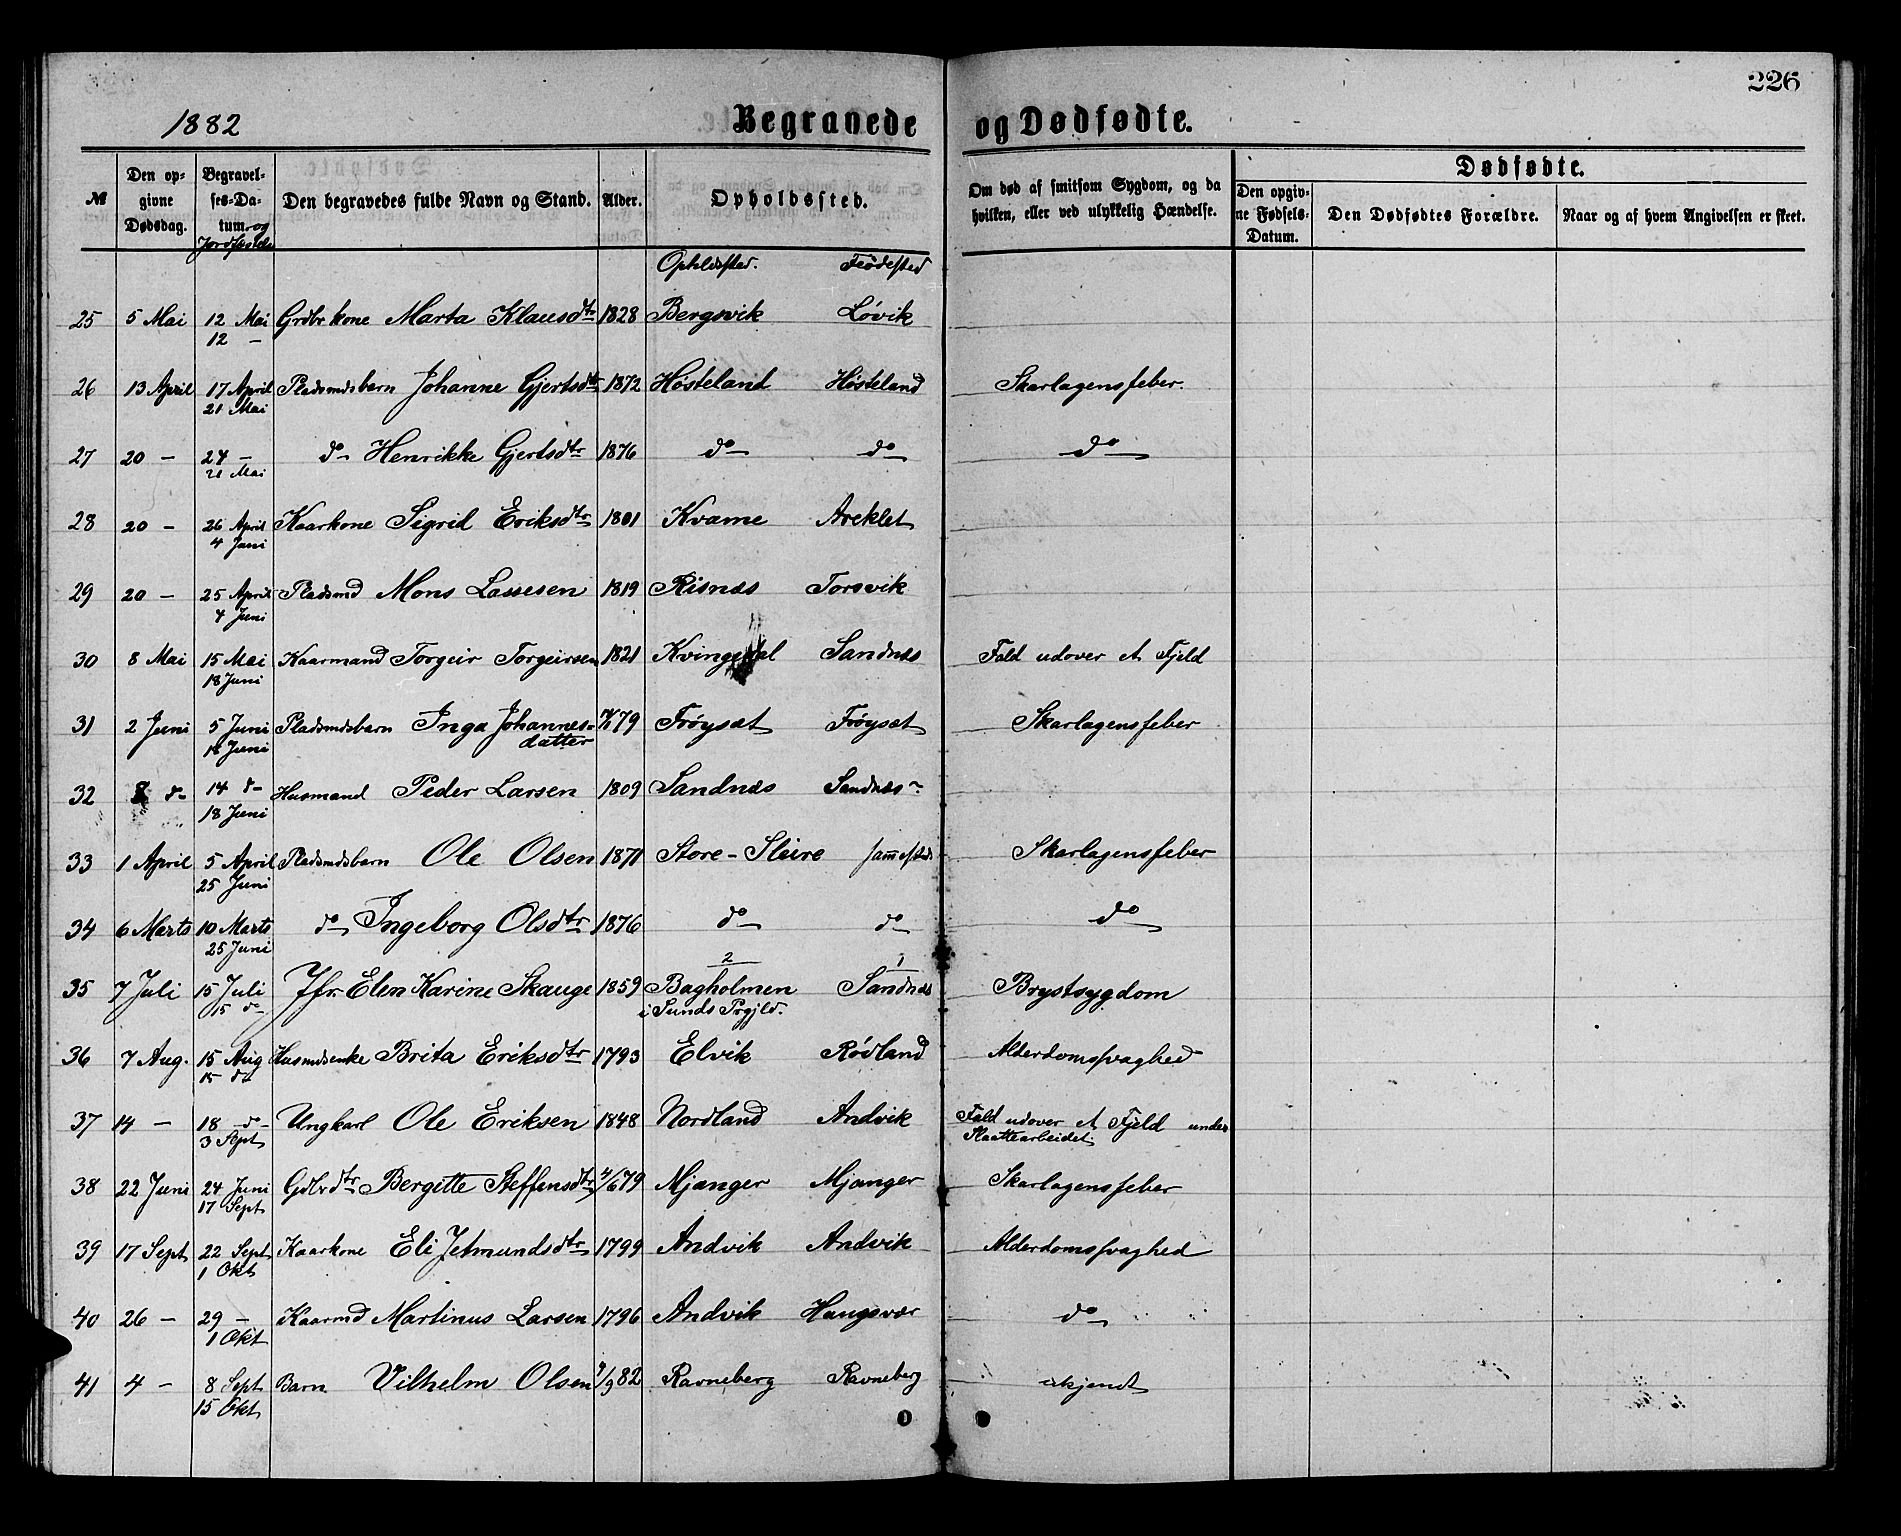 226
1882
Begravede og Dødfødte.
№ Den opgivne Dødsdag. Begravelses-Datum og Jordfæstelse Den begravedes fulde Navn og Stand. Alder. Opholdssted. Om død af smitsom Sygdom, og da hvilken, eller ved ulykkelig Hændelse. Dødfødte.
Den opgivne Fødsels-Datum. Den Dødfødtes Forældre. Naar og af hvem Angivelsen er skeet.
Opholdssted. Fødested
25 5 Mai 12 Mai Grdbrkone Marta Klausdtr 1828 Bergsvik Løvik
12 —
26 13 April 17 April Pladsmdsbarn Johanne Gjertsdtr 1872 Høsteland Høsteland Skarlagensfeber.
21 Mai
27 20 — 24 — do Henrikke Gjertsdtr 1876 do do do
21 Mai
28 20 — 26 April Kaarkone Sigrid Eriksdtr 1801 Kvame Areklet
4 Juni
29 20 — 25 April Pladsmd Mons Lassesen 1819 Risnæs Torsvik
4 Juni
30 8 Mai 15 Mai Kaarmand Torgeir Torgeirsen 1821 Kvingedal Sandnæs Fald udover et Fjeld
18 Juni
31 2 Juni 5 Juni Pladsmdsbarn Inga Johannes- 79 Frøysæt Frøysæt Skarlagensfeber
18 Juni datter
32 8 d— 14 d— Husmand Peder Larsen 1809 Sandnæs Sandnæs
18 Juni
33 1 April 5 April Pladsmdsbarn Ole Olsen 1871 Store-Sleire sammesteds Skarlagensfeber
25 Juni
34 6 Marts 10 Marts do Ingeborg Olsdtr 1876 do do do
25 Juni
2 1
35 7 Juli 15 Juli Jfr. Elen Karine Skauge 1859 Bagholmen Sandnæs Brystsygdom
15 d— i Sunds Prgjld.
36 7 Aug. 15 Aug Husmdsenke Brita Eriksdtr 1793 Elvik Rødland Alderdomssvaghed
15 d—
37 14 — 18 d— Ungkarl Ole Eriksen 1848 Nordland Andvik Fald udover et Fjeld under
3 Sept Slaattearbeidet.
38 22 Juni 24 Juni Gdbrdtr Bergitte Steffensdtr 4/6 79 Mjanger Mjanger Skarlagensfeber
17 Sept
39 17 Sept 22 Sept Kaarkone Eli Jetmundsdtr 1799 Andvik Andvik Alderdomssvaghed
1 Okt
40 26 — 29 — Kaarmd Martinus Larsen 1796 Andvik Haugsvær do
1 Okt
41 4 — 8 Sept Barn Vilhelm Olsen /9 82 Ravneberg Ravneberg ukjendt
15 Okt